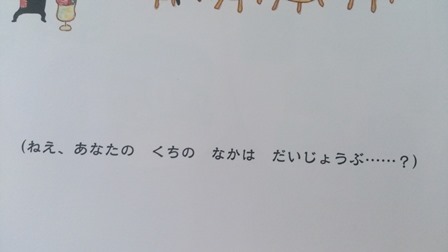 (ねえ、あなたの　くちの　なかは　だいじょうぶ……?)